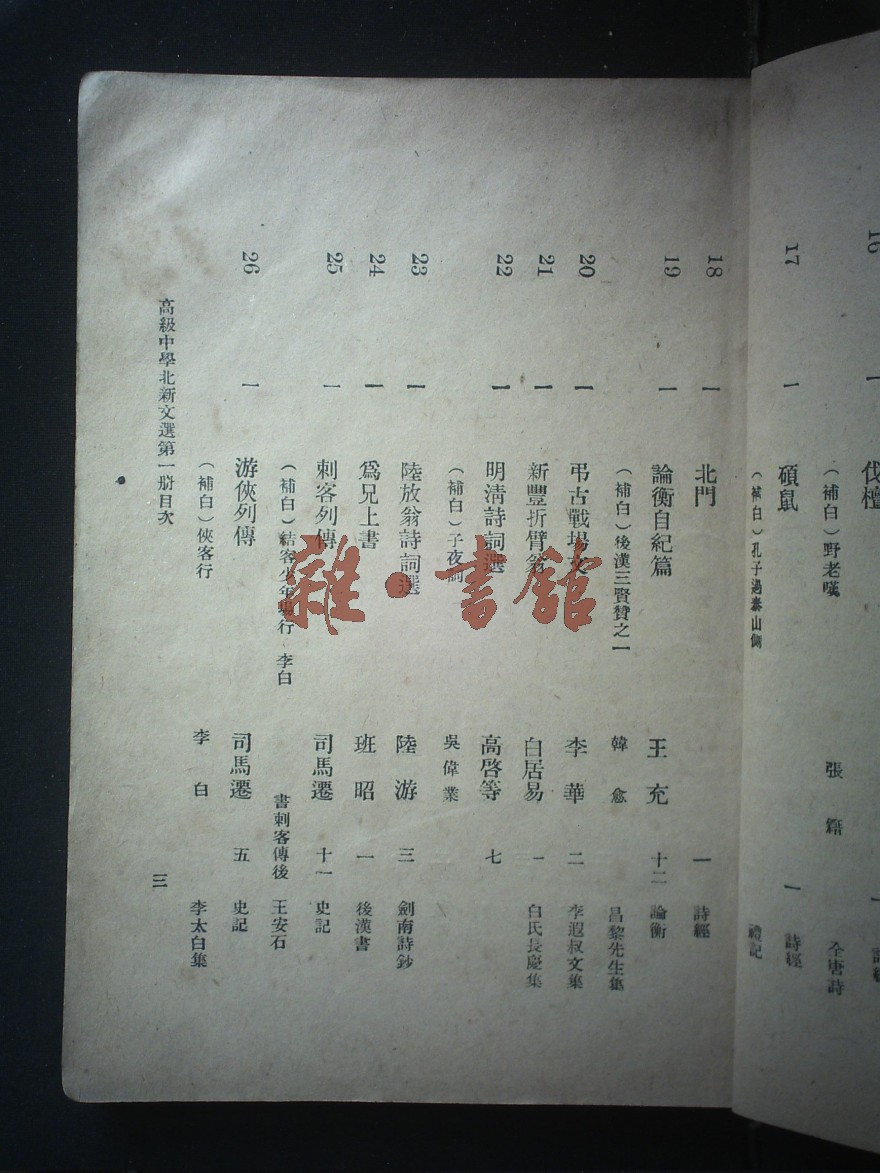 16 一 伐檀 一 詩經
（補白）野老嘆 張籍 全唐詩
17 一 碩鼠 一 詩經
（補白）孔子過泰山側 禮記
18 一 北門 一 詩經
19 一 論衡自紀篇 王充 十二 論衡
（補白）後漢三賢贊之一 韓愈 昌黎先生集
20 一 弔古戰場文 李華 二 李遐叔文集
21 一 新豐折臂翁 白居易 一 白氏長慶集
22 一 明清詩詞選 高啓等 七
（補白）子夜詞 吳偉業
23 一 陸放翁詩詞選 陸游 三 劍南詩鈔
24 一 爲兄上書 班昭 一 後漢書
25 一 刺客列傳 司馬遷 十一 史記
（補白）結客少年場行 李白 書刺客傳後 王安石
26 一 游俠列傳 司馬遷 五 史記
（補白）俠客行 李白 李太白集
高級中學北新文選第一册目次 三
雜·書館